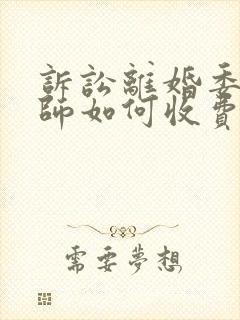 訴訟離婚委
師如何收費
需要夢想